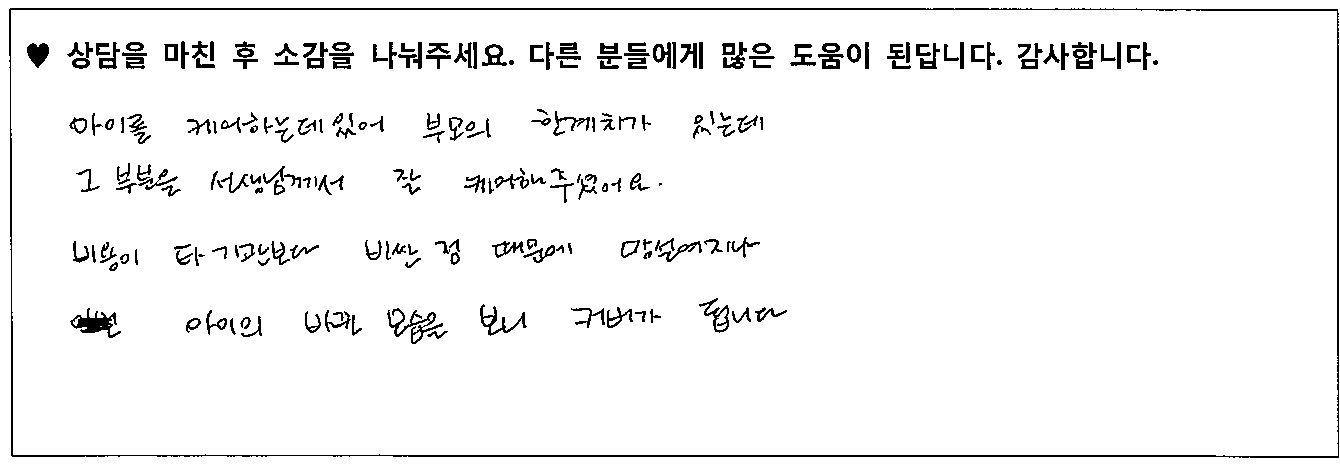 ♥ 상담을 마친 후 소감을 나눠주세요. 다른 분들에게 많은 도움이 된답니다. 감사합니다.
아이를 케어하는데 있어 부모의 한계치가 있는데
그 부분을 선생님께서 잘 케어해주셨어요.
비용이 타 기관보다 비싼 점 때문에 망설여지나
아이의 바뀐 모습을 보니 커버가 됩니다